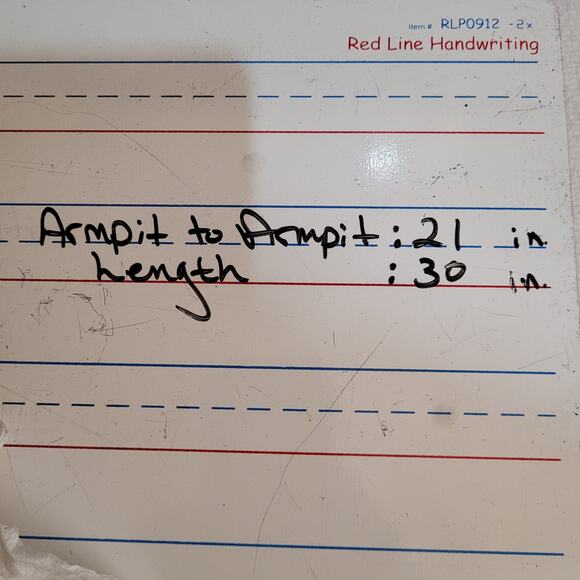 Item # RLP0912 -2x
Red Line Handwriting
Armpit to Armpit : 21 in.
Length : 30 in.